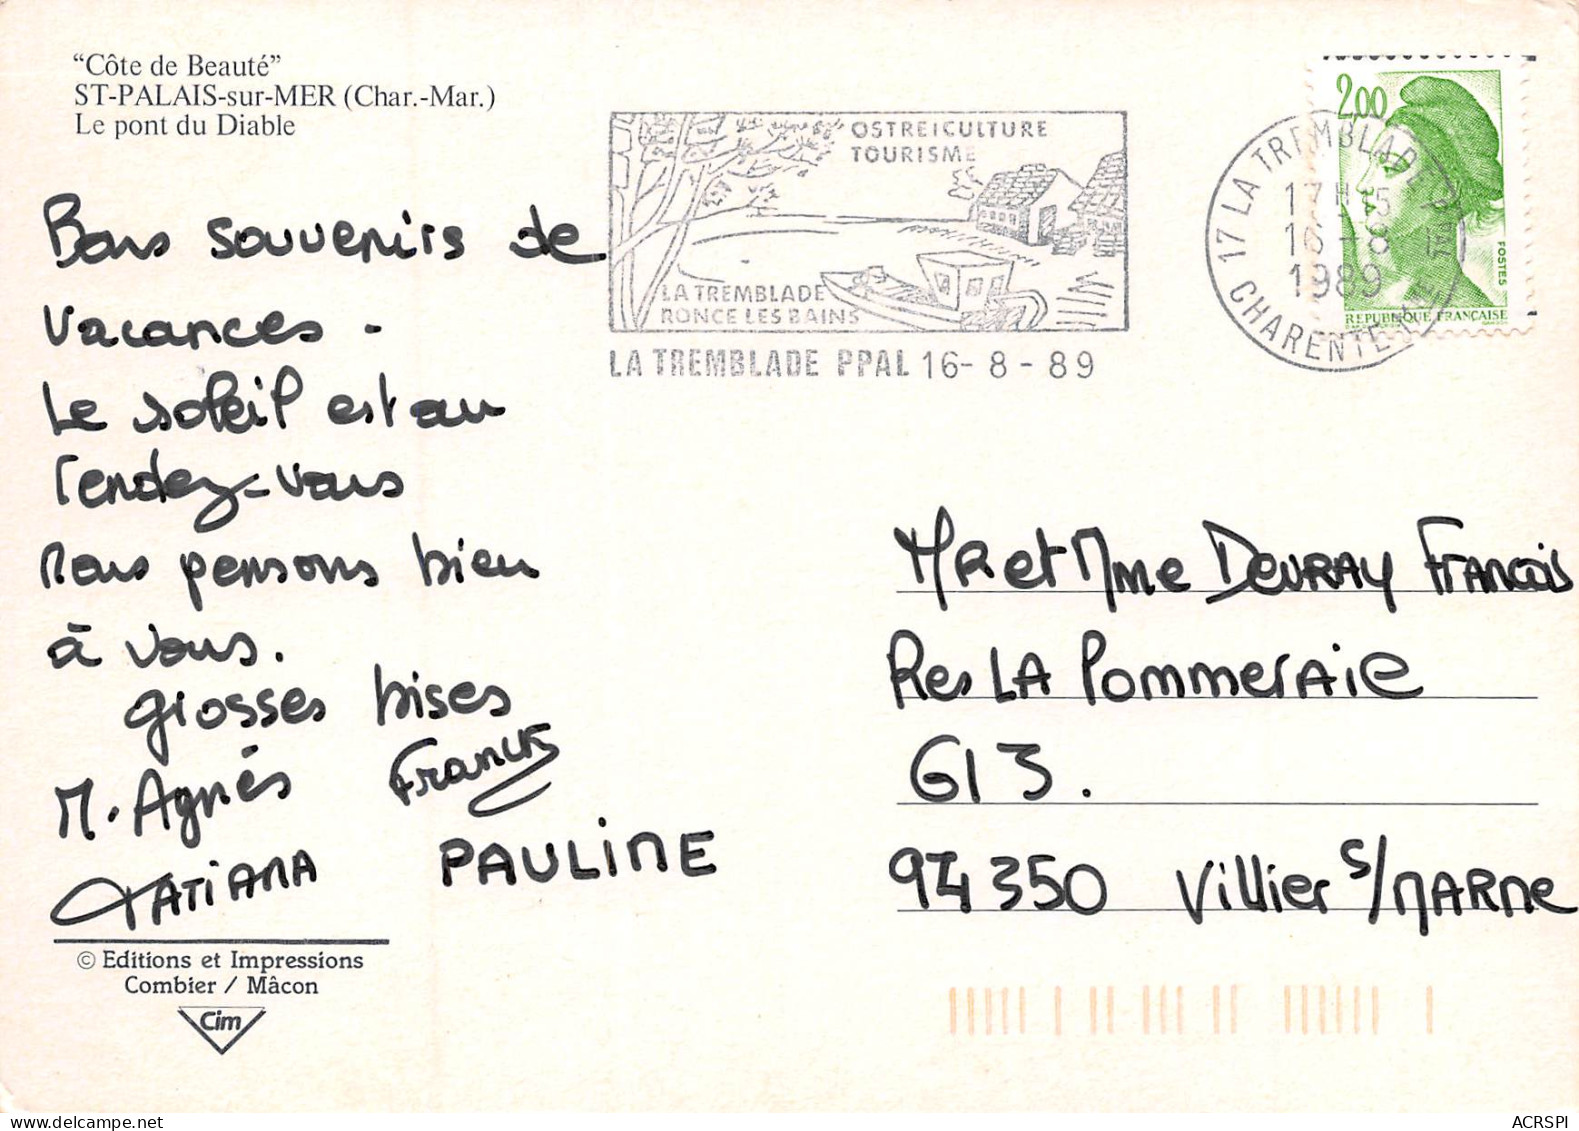 “Côte de Beauté”
ST-PALAIS-sur-MER (Char.-Mar.)
Le pont du Diable
Bons souvenirs de
vacances -
Le soleil est au
rendez-vous
nous pensons bien
à vous.
grosses bises
M. Agnès Franck
TATIANA PAULINE
© Editions et Impressions
Combier / Mâcon
Cim
OSTREICULTURE
TOURISME
LA TREMBLADE
RONCE LES BAINS
LA TREMBLADE PPAL 16-8-89
2,00
POSTES
REPUBLIQUE FRANÇAISE
17 LA TREMBLADE PPAL
17H15
16-8
1989
CHARENTE-MME
MR et Mme DEVRAY François
Res LA Pommeraie
G13.
94350 Villier s/MARNE
ACRSPI